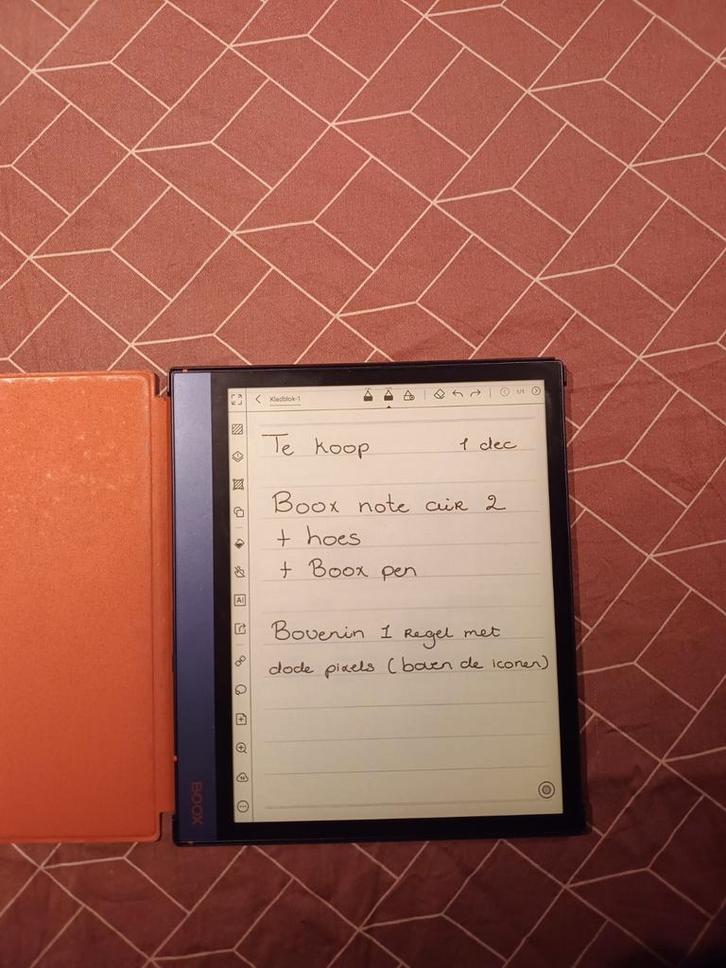 Kladblok-1
1/1
Te koop 1 dec
Boox note air 2
+ hoes
+ Boox pen
Bovenin 1 Regel met
dode pixels (boven de iconen)
AI
BOOX